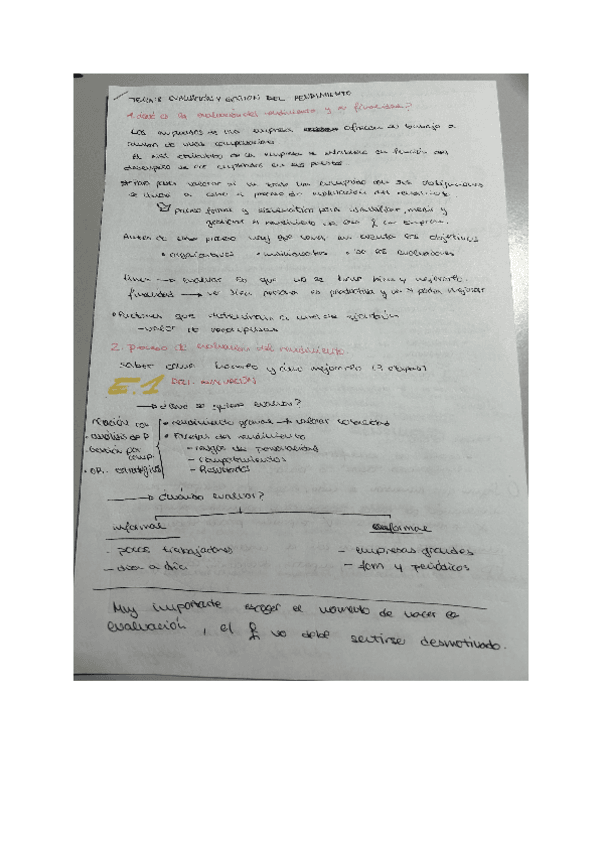 TEMA 8: EVALUACIÓN Y GESTIÓN DEL RENDIMIENTO
1. ¿Qué es la evaluación del rendimiento y su finalidad?
Los empleados de una empresa ofrecen su trabajo a
cambio de unas
El de la empresa se en función del
desempeño de los empleados en sus puestos
para valorar si un empleado con sus obligaciones
se lleva a cabo el proceso de evaluación del rendimiento
proceso formal y sistemático para identificar, medir y
gestionar el rendimiento de las en la empresa.
Antes de este proceso hay que tener en cuenta los objetivos
• organizativos • individuales • de los evaluadores
→ evaluar lo que no se hace bien y mejorarlo
finalidad → si la persona es productiva y se puede mejorar
• Factores que el nivel de
– valor de recompensas
2. Proceso de evaluación del rendimiento.
saber cómo hacerlo y cómo mejorarlo
E.1 DEL. EVALUACIÓN
→ ¿Qué se quiere evaluar?
Relación con
• análisis de P.
• Gestión por comp.
• OP. estratégico
• rendimiento global → valorar
• Facetas del rendimiento
– rasgos de personalidad
– comportamientos
– Resultados
→ ¿Cuándo evaluar?
informal formal
– pocos trabajadores – empresas grandes
– día a día – form y periódicos
Muy importante escoger el momento de hacer la
evaluación, el no debe sentirse desmotivado.